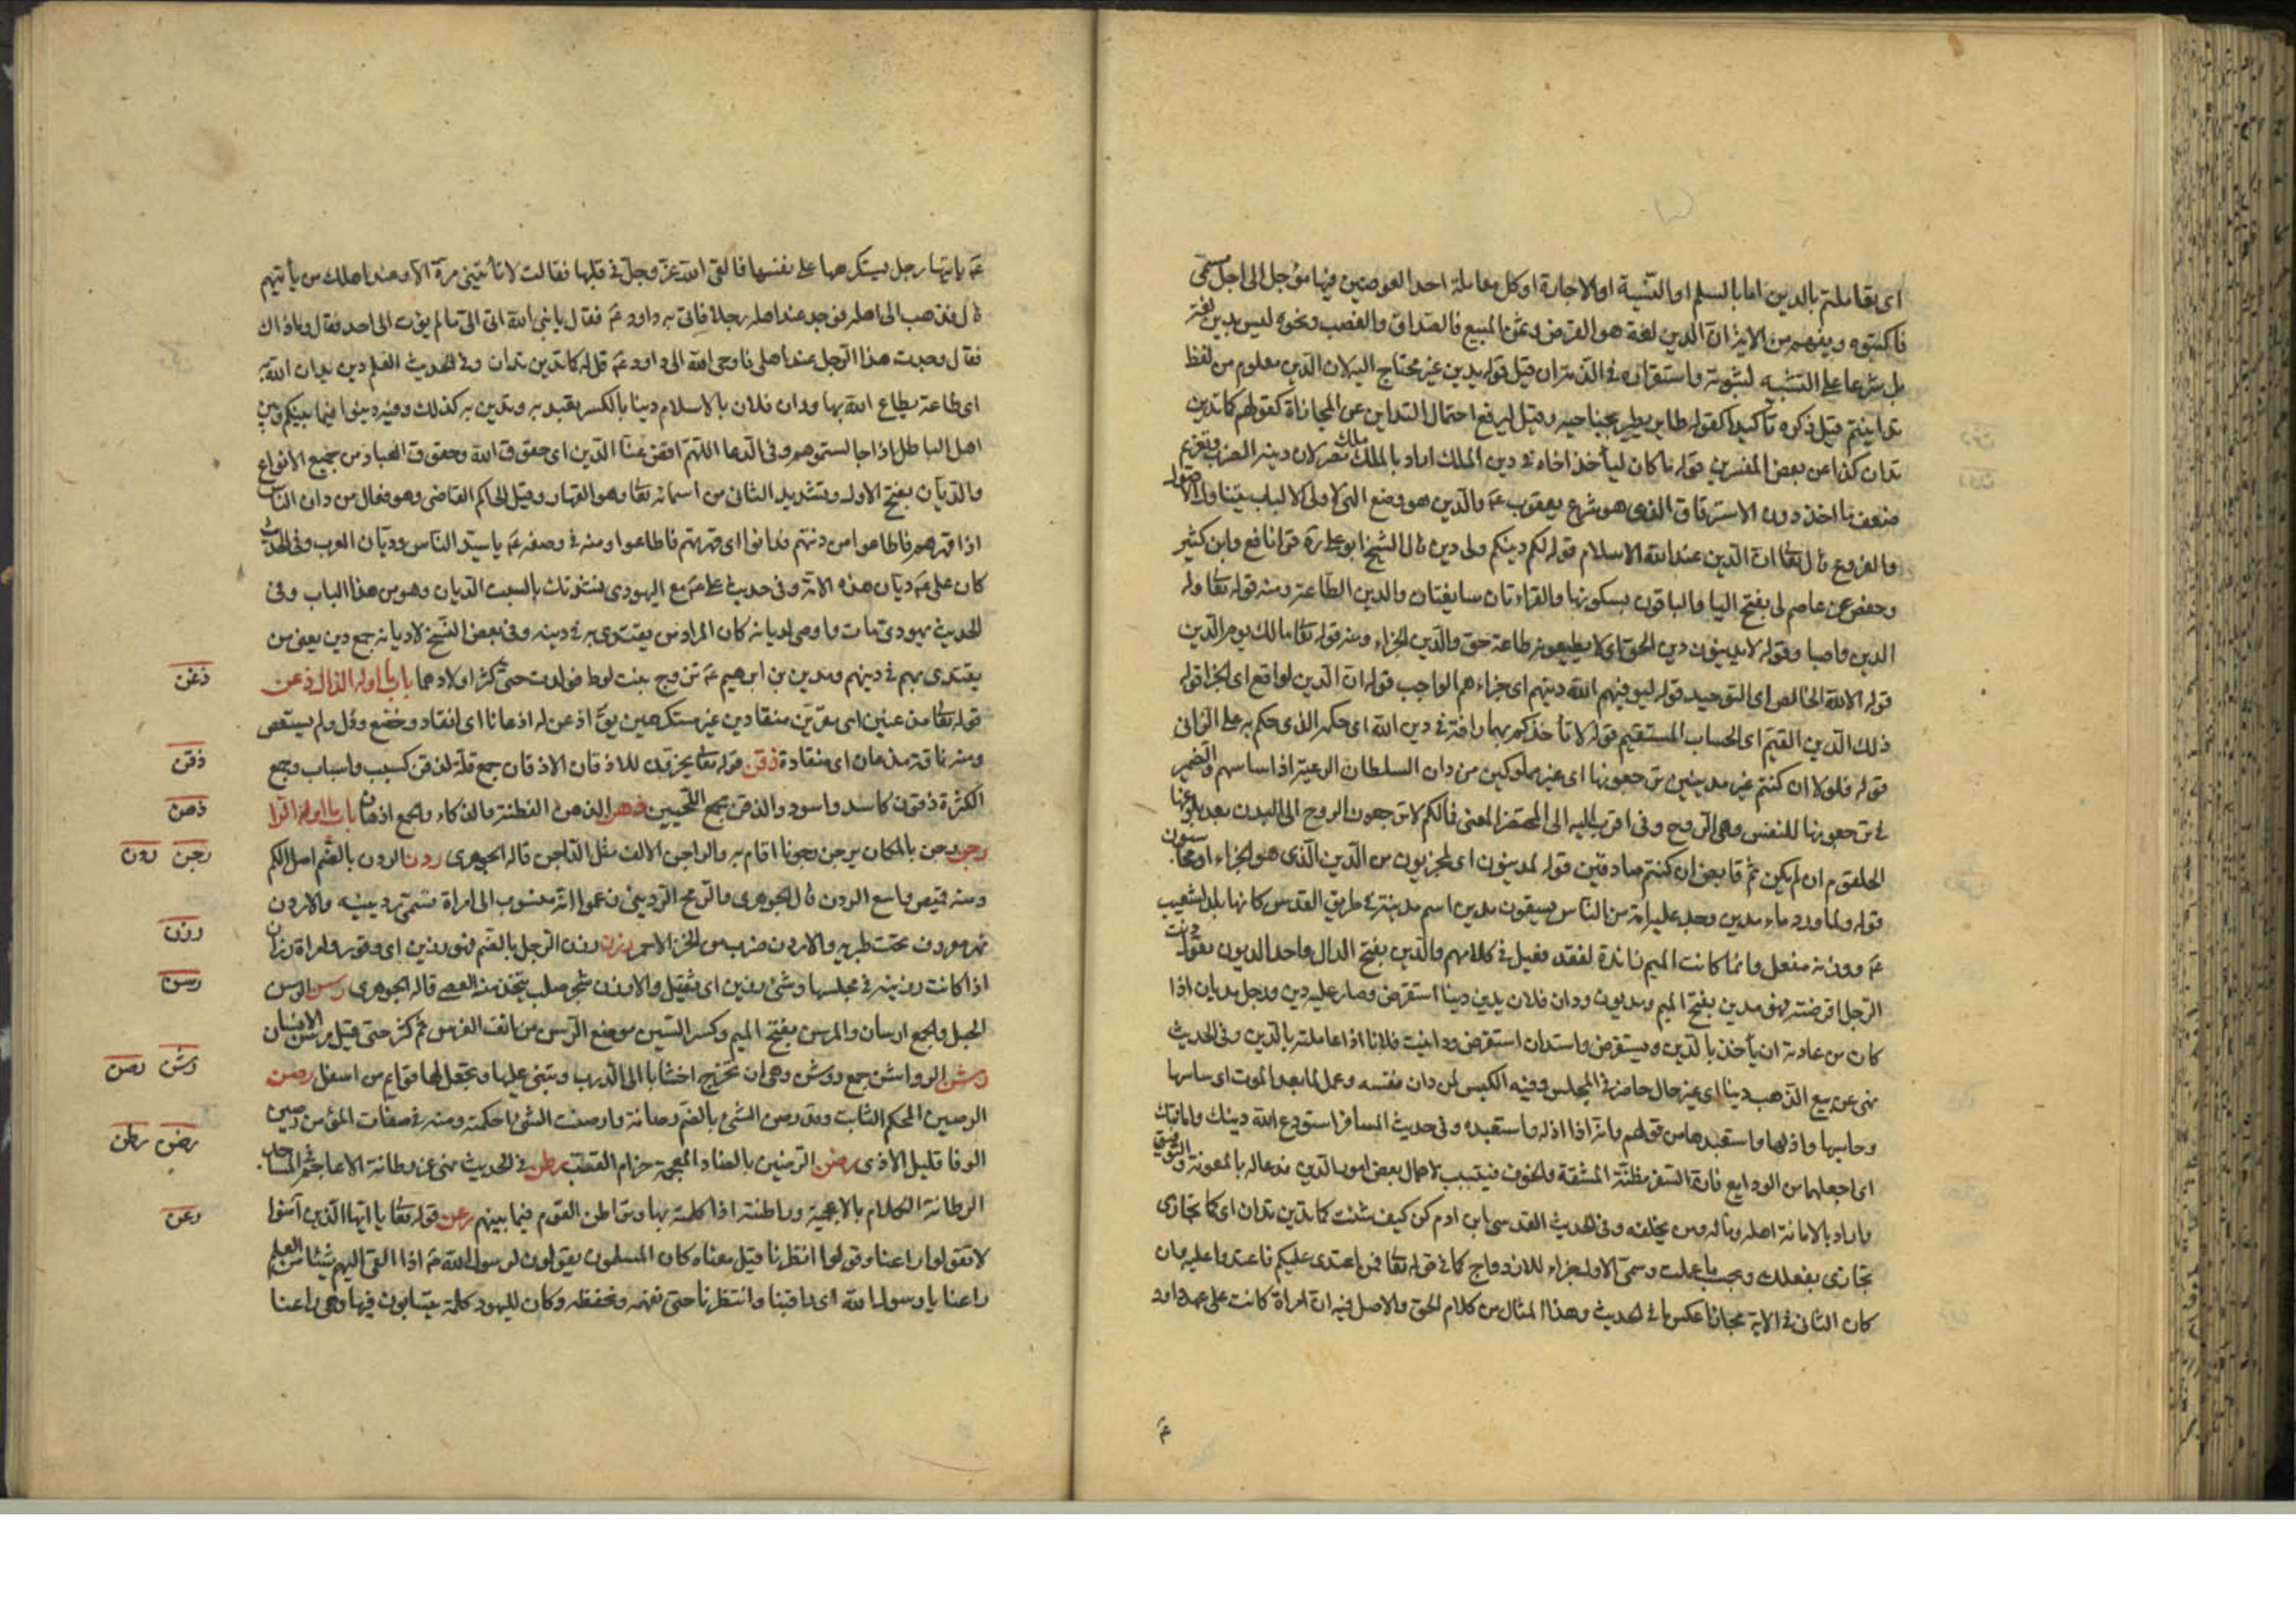 اى تعاملتم بالدين اما بالسلم او النسية او الاجارة او كل معاملة احد العوضين فيها مؤجل الى اجل مسمى
فاكتبوه ويفهم من الاية ان الدين لغة هو القرض وثمن المبيع فالصداق والغصب ونحوه ليس بدين لغة
بل شرعا على التشبيه لثبوته واستقراره فى الذمة قيل قوله بدين غير محتاج اليه لان الدين معلوم من لفظ
تداينتم قيل ذكره تأكيدا كقوله طاير يطير بجناحيه وقيل ليرفع احتمال التداين من المجازاة كقولهم كما تدين
تدان كذا عن بعض المفسرين قوله ما كان ليأخذ اخاه فى دين الملك اراد بالملك ملك مصر لان دينه الضرب وتغريم
ضعف ما اخذ دون الاسترقاق الذى هو شرع يعقوب عم والدين هو وضع الهى لاولى الالباب يتناول الاصول
والفروع قال تعا ان الدين عند الله الاسلام قوله لكم دينكم ولى دين قال الشيخ ابو على ره قرا نافع وابن كثير
وحفص عن عاصم لى بفتح اليا والباقون بسكونها والقراءتان سايغتان والدين الطاعة ومنه قوله تعا وله
الدين واصبا وقوله لا يدينون دين الحق اى لا يطيعونه طاعة حق والدين الجزاء ومنه قوله تعا مالك يوم الدين
قوله الا لله الدين الخالص اى التوحيد قوله ليوفيهم الله دينهم اى جزاءهم الواجب قوله ان الدين لواقع اى الجزا قوله
ذلك الدين القيم اى الحساب المستقيم قوله لا تأخذكم بهما رافة فى دين الله اى حكمه الذى حكم به على الزانى
قوله فلولا ان كنتم غير مدينين ترجعونها اى غير مملوكين من دان السلطان الرعية اذا ساسهم والضمير
فى ترجعونها للنفس وهى الروح وفى اقرب اليه الى المحتضر المعنى فالكم لا ترجعون الروح الى البدن بعد بلوغها
الحلقوم ان لم يكن ثم قابض ان كنتم صادقين قوله لمدينون اى لمجزيون من الدين الذى هو الجزاء او محاسبون
قوله ولما ورد ماء مدين وجد عليه امة من الناس يسقون مدين اسم مدينة فى طريق القدس كانها بلد لشعيب
عم ووزنه مفعل وانما كانت الميم زائدة لفقد فعيل فى كلامهم والدين بفتح الدال واحد الديون تقول دنت
الرجل اقرضته فهو مدين بفتح الميم ومديون ودان فلان يدين دينا استقرض وصار عليه دين ورجل مديان اذا
كان من عادته ان يأخذ بالدين ويستقرض واستدان استقرض وداينت فلانا اذا عاملته بالدين وفى الحديث
نهى عن بيع الذهب دينا اى غير حال حاضر فى المجلس وفيه الكيس من دان نفسه وعمل لما بعد الموت اى ساسها
وحاسبها واذلها واستعبدها من قولهم دانه اذا اذله واستعبده وفى حديث المسافر استودع الله دينك وامانتك
اى اجعلهما من الودايع فان السفر مظنة المشقة والخوف فيتسبب لاهمال بعض امور الدين فدعا له بالمعونة والتوفيق
واراد بالامانة اهله وماله ومن يخلفه وفى الحديث القدسى ابن ادم كن كيف شئت كما تدين تدان اى كما تجازى
تجازى بفعلك وبحسب ما عملت وسمى الاول جزاء للازدواج كما فى قوله تعا فمن اعتدى عليكم فاعتدوا عليه وان
كان الثانى فى الاية مجازا عكس ما فى الحديث وهذا المثل من كلام الحق والاصل فيه ان امراة كانت على عهد داود
عم
عم ياتيها رجل يستكرهها على نفسها فالقى الله عز وجل فى قلبها فقالت لا تأتينى مرة الا وعند اهلك من يأتيهم
قال فذهب الى اهله فوجد عند اهله رجلا فاتى به داود عم فقال يا نبى الله اتى الى ما لم يؤت الى احد فقال وما ذاك
فقال وجدت هذا الرجل عند اهلى فاوحى الله الى داود عم قل له كما تدين تدان وفى الحديث العلم دين يدان الله به
اى طاعة يطاع الله بها ودان فلان بالاسلام دينا بالكسر تعبد به وتدين به كذلك وفيه دينوا فيما بينكم وبين
اهل الباطل اذا جالستموهم وفى الدعا اللهم اقض عنا الدين اى حقوق الله وحقوق العباد من جميع الانواع
والديان بفتح الاول وتشديد الثانى من اسمائه تعا وهو القهار وقيل الحاكم القاضى وهو فعال من دان الناس
اذا قهرهم فاطاعوا من دنتهم فدانوا اى قهرتهم فاطاعوا ومنه فى وصفه عم يا سيد الناس وديان العرب وفى الحديث
كان على عم ديان هذه الامة وفى حديث على عم مع اليهودى بالسبت الديان وهو من هذا الباب وفى
الحديث يهودى مات واوصى لديانه كان المراد من يقتدى به فى دينه وفى بعض النسخ لاديانه جمع دين يعنى من
يقتدى بهم فى دينهم ومدين بن ابرهيم عم تزوج بنت لوط فولدت حتى كثر اولادهما باب ما اوله الذال ذعن
قوله تعا مذعنين اى مقرين منقادين غير مستكرهين يق اذعن له اذعانا اى انقاد وخضع وذل ولم يستعص
ومنه ناقة مذعان اى منقادة ذقن قوله تعا يخرون للاذقان الاذقان جمع قلة لذقن كسبب واسباب وجمع
الكثرة ذقون كاسد واسود والذقن مجمع اللحيين ذهن الذهن الفطنة والذكاء والجمع اذهان باب ما اوله الرا
رجن رجن بالمكان يرجن رجونا اقام به والراجن الالف مثل الداجن قاله الجوهرى ردن الردن بالضم اصل الكم
ومنه قميص واسع الردن قال الجوهرى والرمح الردينى زعموا انه منسوب الى امراة تسمى ردينيه والاردن
نهر معروف تحت طبريه والاردن ضرب من الخز الاحمر رزن رزن الرجل بالضم فهو رزين اى وقور وامراة رزان
اذا كانت رزينة فى مجلسها وشئ رزين اى ثقيل والارزن شجر صلب يتخذ منه العصى قاله الجوهرى رسن الرسن
الحبل والجمع ارسان والمرسن بفتح الميم وكسر السين موضع الرسن من انف الفرس ثم كثر حتى قيل مرسن الانسان
رشن الرواشن جمع روشن وهى ان تخرج اخشابا الى الدرب وتبنى عليها وتجعل لها قوايم من اسفل رصن
الرصين المحكم الثابت وقد رصن الشئ بالضم رصانة وارصنت الشئ احكمته ومنه فى صفات المؤمن رصين
الوفا قليل الاذى رضن الرضين بالضاد المعجمة حزام القطب رطن فى الحديث نهى عن رطانة الاعاجم فى المساجد
الرطانة الكلام بالاعجمية وراطنته اذا كلمته بها وتراطن القوم فيما بينهم رعن قوله تعا يا ايها الذين آمنوا
لا تقولوا راعنا وقولوا انظرنا قيل معناه كان المسلمون يقولون لرسول الله ص اذا القى اليهم شيئا من العلم
راعنا يا رسول الله اى راقبنا وانتظرنا حتى نفهمه ونحفظه وكان لليهود كلمة يتسابون فيها وهى راعنا
ذعن
ذقن
ذهن
رجن ردن
رزن
رسن
رشن رصن
رضن رطن
رعن